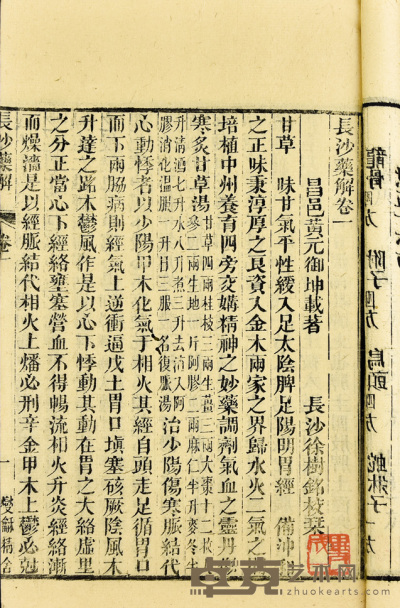 龍骨四方 附子四方 烏頭四方 蛇牀子一方
長沙藥解卷一
昌邑黃元御坤載著 長沙徐樹銘校栞
甘草 味甘氣平性緩入足太陰脾足陽明胃經 備沖
之正味秉淳厚之良資入金木兩家之界歸水火二氣之
培植中州養育四旁交媾精神之妙藥調劑氣血之靈丹
寒炙甘草湯 甘草四兩桂枝三兩生薑三兩大棗十二枚
參二兩生地一斤阿膠二兩麻仁半升麥冬半
升清酒七升水八升煮三升去滓入阿
膠消化溫服一升日三服 治少陽傷寒脈結代
心動悸者以少陽甲木化氣于相火其經自頭走足循胃口
而下兩脇病則經氣上逆衝逼戊土胃口填塞礙厥陰風木
升達之路木鬱風作是以心下悸動其動在胃之大絡虛里
之分正當心下經絡壅塞營血不得暢流相火升炎經絡漸
而燥濇是以經脈結代相火上燔必刑辛金甲木上鬱必剋
長沙藥解 卷一 一 燮龢精舍
卓克艺术网
www.zhuokearts.com